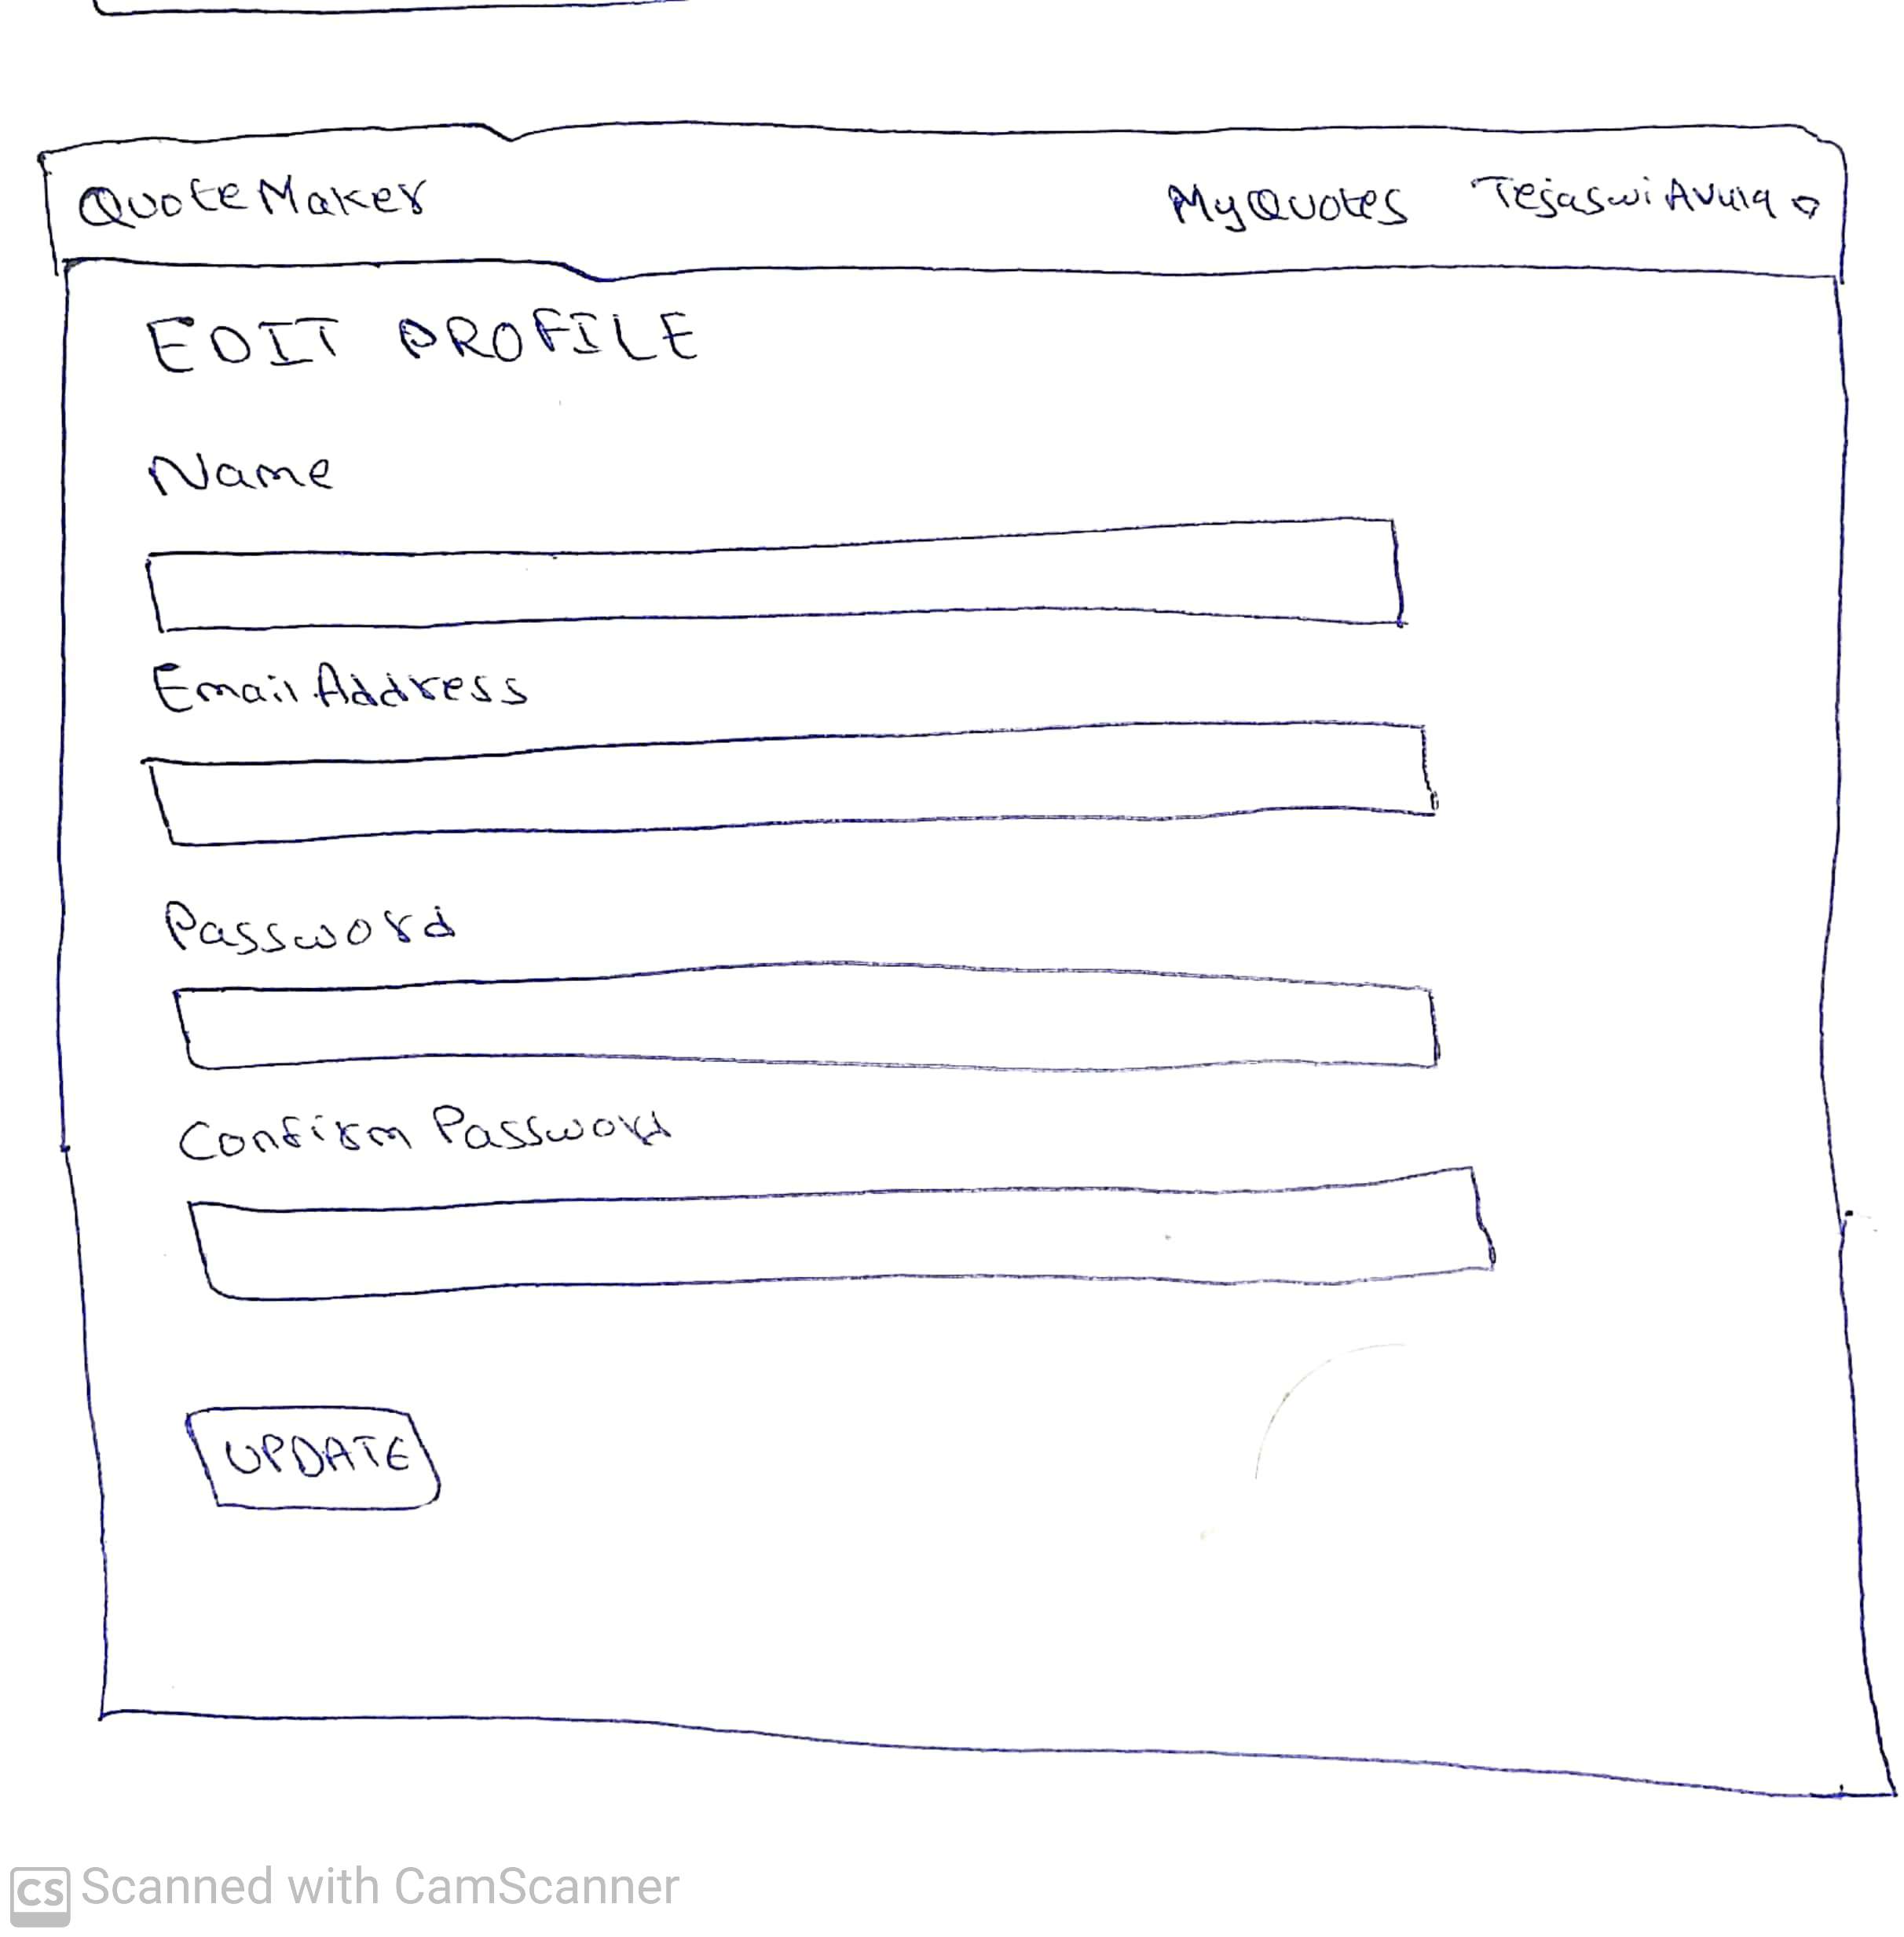 QuoteMaker MyQuotes Tejaswi Avula
EDIT PROFILE
Name
Email Address
Password
Confirm Password
UPDATE
CS Scanned with CamScanner